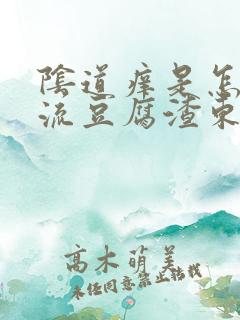 陰道痒是怎
流豆腐渣東
高木萌美
未经同意禁止转载